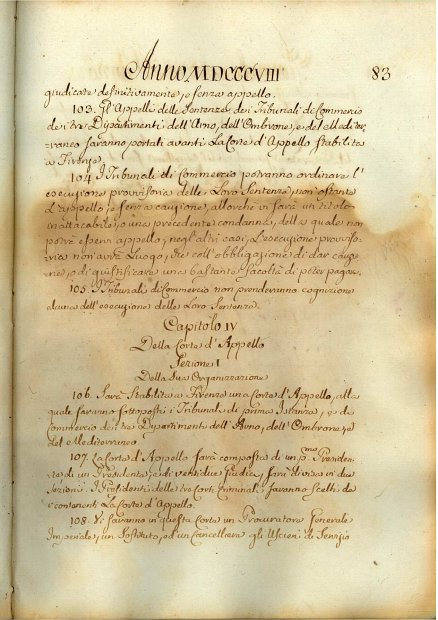 Anno MDCCCVIII 83
giudicate definitivamente, e senza appello.
103. Gl'Appelli delle Sentenze dei Tribunali di Commercio
dei tre Dipartimenti dell'Arno, dell'Ombrone, e del Mediter-
raneo saranno portati avanti La Corte d'Appello stabilita
a Firenze.
104. I Tribunali di Commercio potranno ordinare l'
esecuzione provvisoria delle Loro Sentenze, non ostante
l'appello, e senza cauzione, allorche vi sarà un titolo
inattacabile, o una precedente condanna, della quale non
potrà esservi appello, negl'altri casi, l'esecuzione provviso-
ria non avrà Luogo, che coll'obbligazione di dar cauzio-
ne, o di giustificare una bastante facoltà di poter pagare.
105. I Tribunali di Commercio non prenderanno cognizione
alcuna dell'esecuzione delle Loro Sentenze.
Capitolo IV
Della Corte d'Appello
Sezione I
Della Sua Organizzazione
106. Sarà Stabilita a Firenze una Corte d'Appello, alla
quale saranno sottoposti i Tribunali di prima Istanza, e di
Commercio dei tre Dipartimenti dell'Arno, dell'Ombrone, e
del Mediterraneo.
107. La Corte d'Appello sarà composta di un p.mo Presiden-
te di un Presidente, e di ventidue Giudici, sarà divisa in due
Sezioni. I Presidenti delle tre Corti Criminali saranno Scelti da
componenti La Corte d'Appello.
108. Vi saranno in questa Corte un Procuratore Generale
Imperiale, un Sostituto, ed un Cancelliere gli Uscieri di Servizio